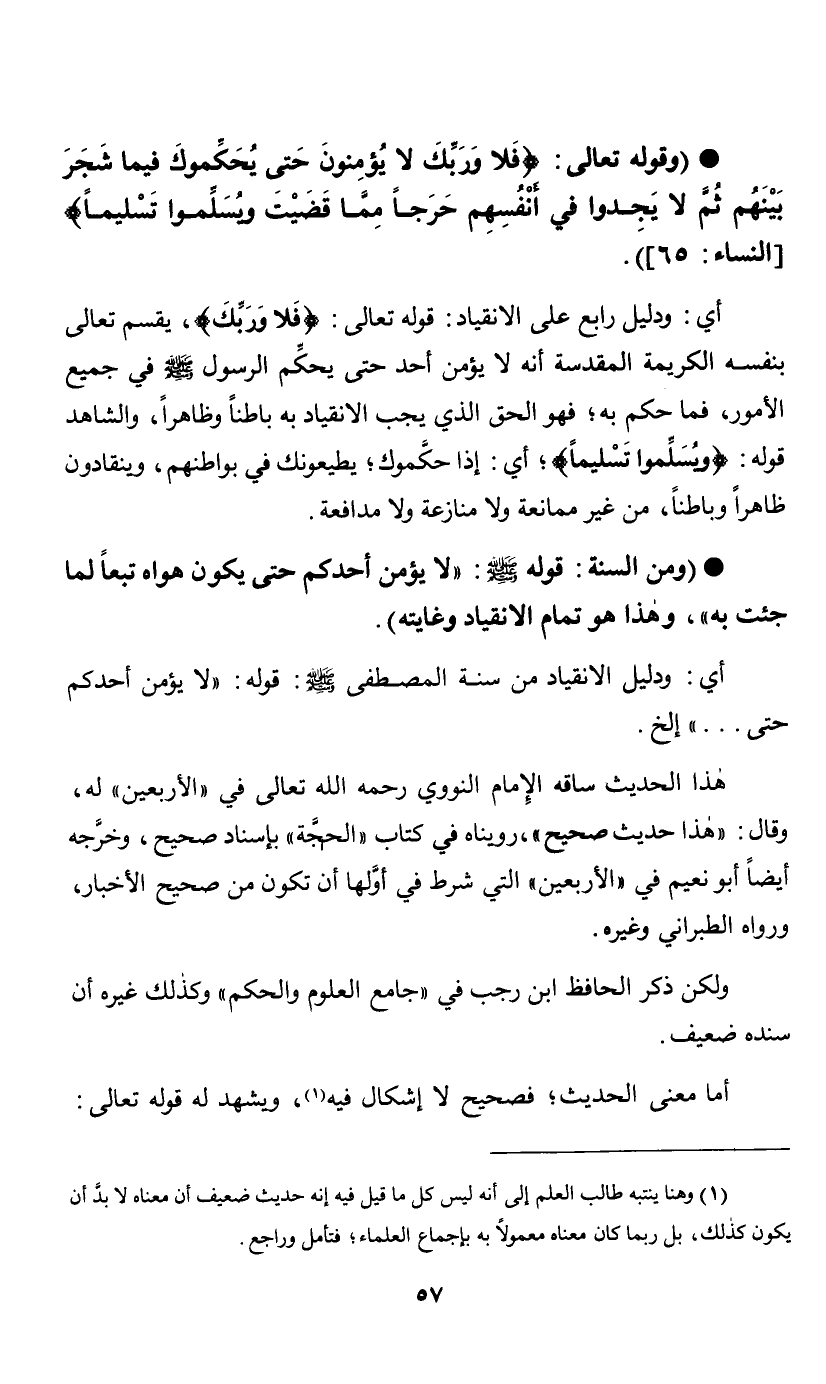 ● (وقوله تعالى: ﴿فَلا وَرَبِّكَ لا يُؤمِنونَ حَتى يُحَكِّموكَ فيما شَجَرَ
بَيْنَهُم ثُمَّ لا يَجِـدوا في أَنْفُسِهِم حَرَجـاً مِمَّـا قَضَيْتَ ويُسَلِّمـوا تَسْليمـاً﴾
[النساء: ٦٥]).
أي: ودليل رابع على الانقياد: قوله تعالى: ﴿فَلا وَرَبِّكَ﴾، يقسم تعالى
بنفسـه الكريمة المقدسة أنه لا يؤمن أحد حتى يحكِّم الرسول ﷺ في جميع
الأمور، فما حكم به؛ فهو الحق الذي يجب الانقياد به باطناً وظاهراً، والشاهد
قوله: ﴿ويُسَلِّموا تَسْليماً﴾؛ أي: إذا حكَّموك؛ يطيعونك في بواطنهم، وينقادون
ظاهراً وباطناً، من غير ممانعة ولا منازعة ولا مدافعة.
● (ومن السنة: قوله ﷺ: «لا يؤمن أحدكم حتى يكون هواه تبعاً لما
جئت به»، وهٰذا هو تمام الانقياد وغايته).
أي: ودليل الانقياد من سنـة المصـطفى ﷺ: قوله: «لا يؤمن أحدكم
حتى...» إلخ.
هٰذا الحديث ساقه الإِمام النووي رحمه الله تعالى في «الأربعين» له،
وقال: «هٰذا حديث صحيح»،رويناه في كتاب «الحجَّة» بإسناد صحيح، وخرَّجه
أيضاً أبو نعيم في «الأربعين» التي شرط في أوَّلها أن تكون من صحيح الأخبار،
ورواه الطبراني وغيره.
ولكن ذكر الحافظ ابن رجب في «جامع العلوم والحكم» وكذٰلك غيره أن
سنده ضعيف.
أما معنى الحديث؛ فصحيح لا إشكال فيه(١)، ويشهد له قوله تعالى:
(١) وهنا ينتبه طالب العلم إلى أنه ليس كل ما قيل فيه إنه حديث ضعيف أن معناه لا بدَّ أن
يكون كذٰلك، بل ربما كان معناه معمولاً به بإجماع العلماء؛ فتأمل وراجع.
٥٧